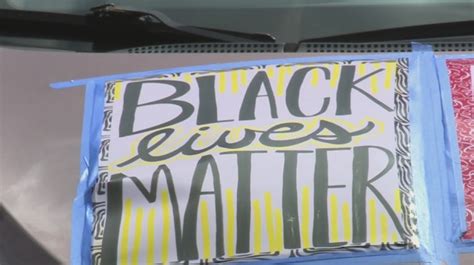 BLACK
lives
MATTER